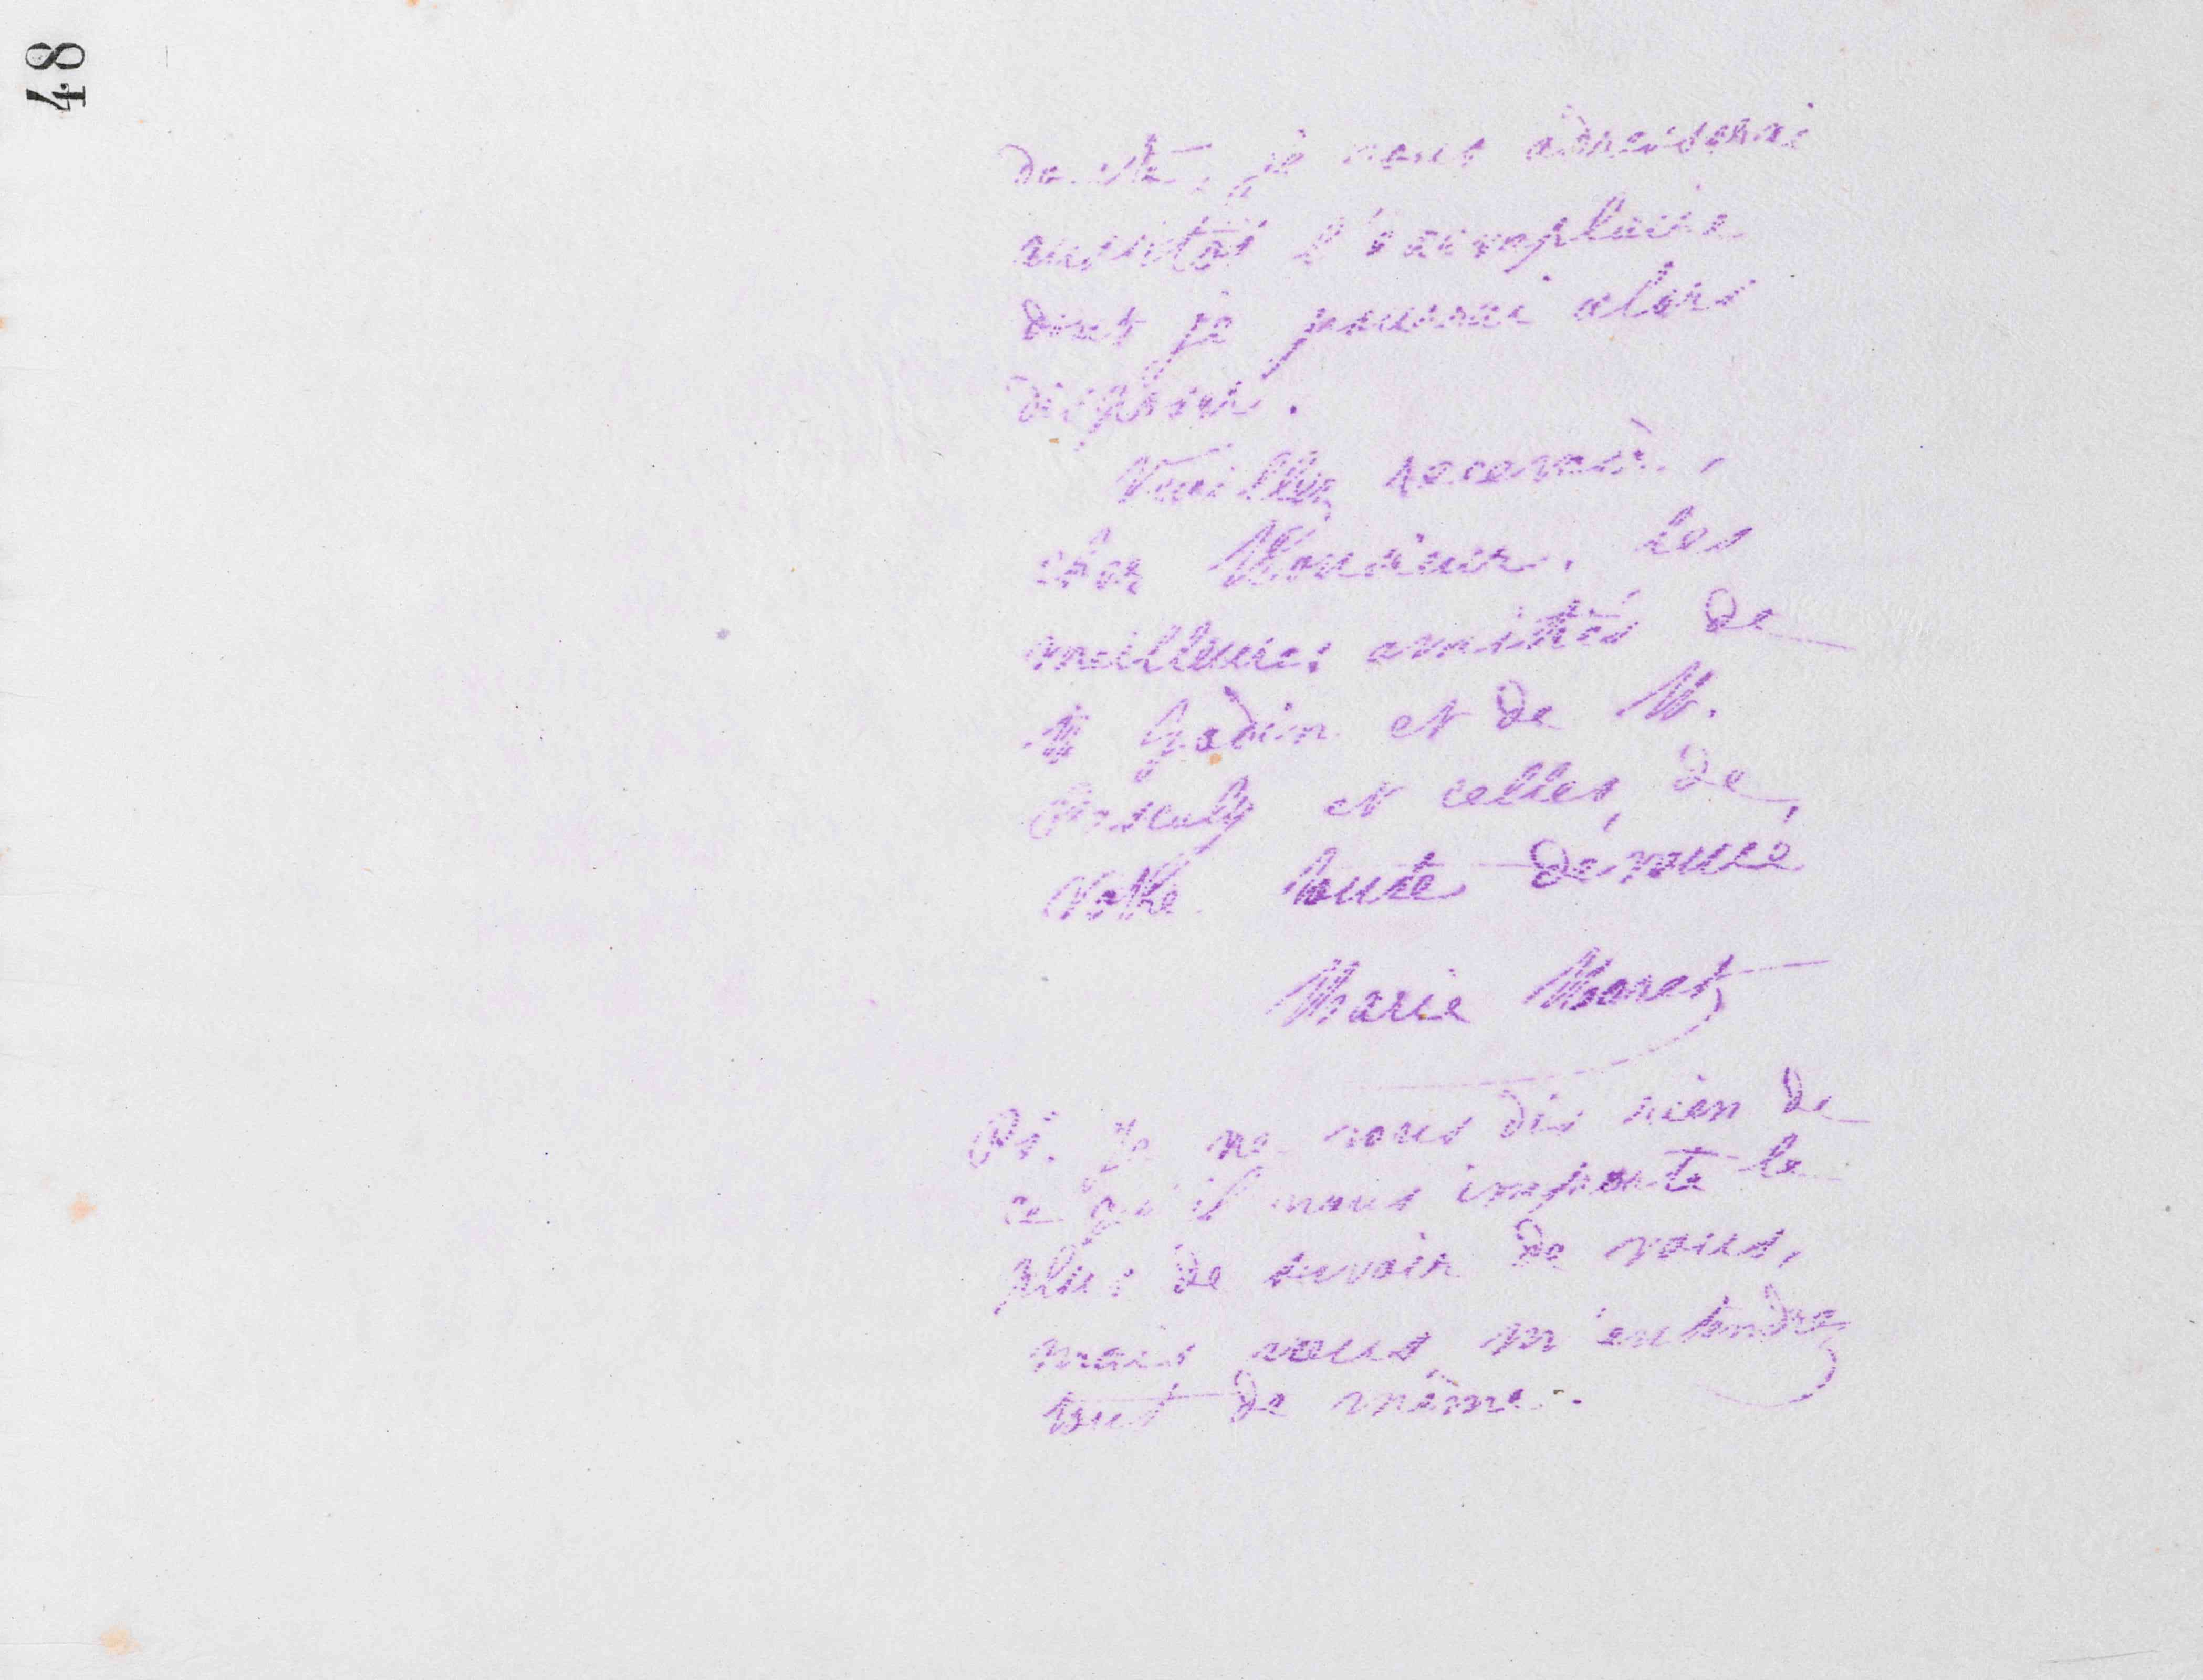 48
doute, je vous adresserai
aussitôt l'exemplaire
dont je pourrai alors
disposer.
Veuillez recevoir,
cher Monsieur, les
meilleures amitiés de
M Godin et de M.
Pascaly et celles de
votre toute dévouée
Marie Moret
Ps. Je ne vous dis rien de
ce qu'il nous importe le
plus de savoir de vous,
mais vous m'entendez
tout de même.